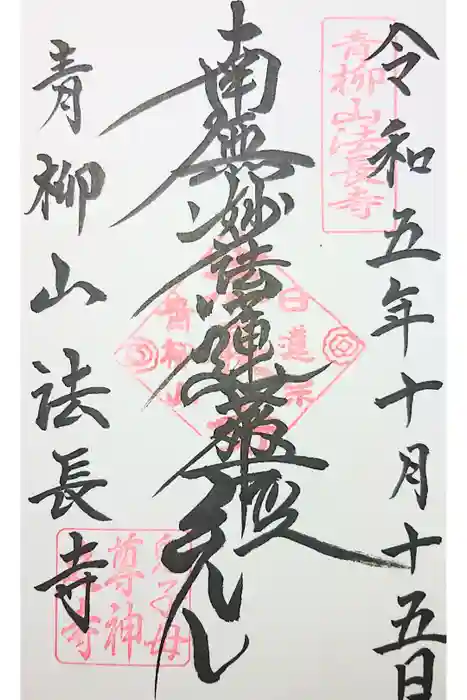 令和五年十月十五日
青柳山法長寺
南無妙法蓮華経
日蓮宗
青柳山
青柳山法長寺
鬼子母
尊神